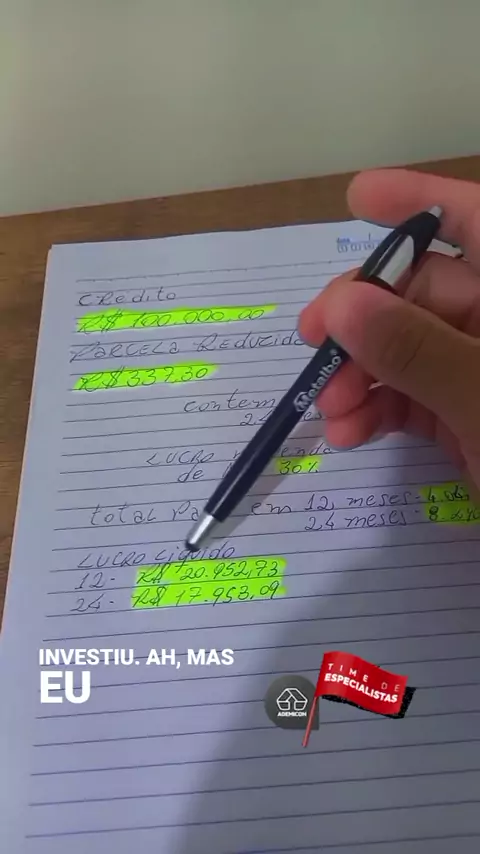 CRÉDITO
R$ 100.000,00
PARCELA REDUZIDA
R$ 337,30
contem
24
LUCRO
de 30%
total Pa em 12 meses-
24 meses-
LUCRO LIQUIDO
12- R$ 20.952,73
24- R$ 17.953,09
Metalbo
INVESTIU. AH, MAS
EU
TIME DE
ESPECIALISTAS
ADEMICON